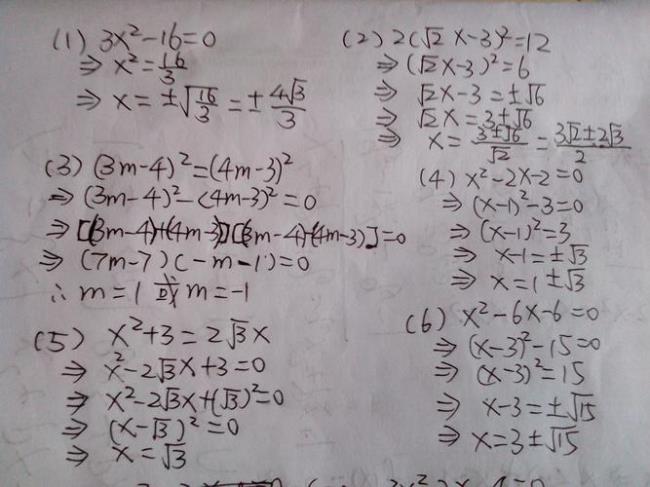 (1) 3x²-16=0
⇒ x²=16/3
⇒ x=±√(16/3)=±4√3/3
(2) 2(√2 x-3)²=12
⇒ (√2 x-3)²=6
⇒ √2x-3=±√6
⇒ √2x=3±√6
⇒ x=(3±√6)/√2=(3√2±2√3)/2
(3) (3m-4)²=(4m-3)²
⇒ (3m-4)²-(4m-3)²=0
⇒ [(3m-4)+(4m-3)][(3m-4)-(4m-3)]=0
⇒ (7m-7)(-m-1)=0
∴ m=1 或 m=-1
(4) x²-2x-2=0
⇒ (x-1)²-3=0
⇒ (x-1)²=3
⇒ x-1=±√3
⇒ x=1±√3
(5) x²+3=2√3x
⇒ x²-2√3x+3=0
⇒ x²-2√3x+(√3)²=0
⇒ (x-√3)²=0
⇒ x=√3
(6) x²-6x-6=0
⇒ (x-3)²-15=0
⇒ (x-3)²=15
⇒ x-3=±√15
⇒ x=3±√15